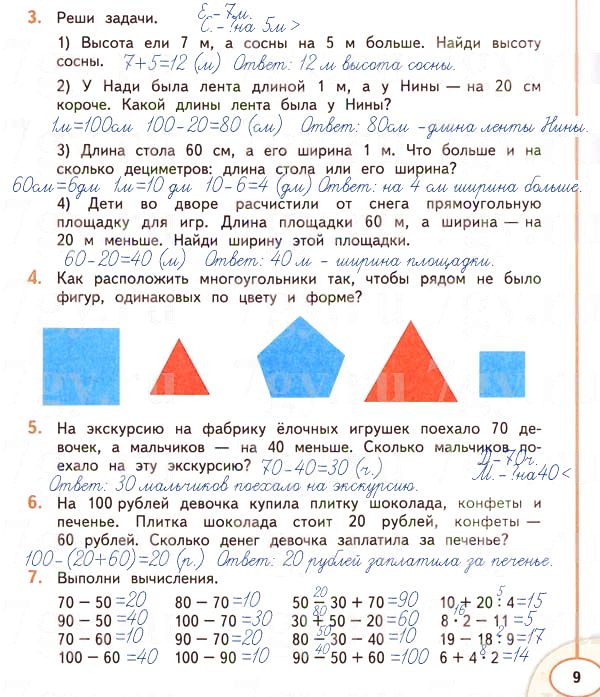 3. Реши задачи. Е. – 7м.
С. – ? на 5м >
1) Высота ели 7 м, а сосны на 5 м больше. Найди высоту
сосны. 7+5=12 (м) Ответ: 12 м высота сосны.
2) У Нади была лента длиной 1 м, а у Нины — на 20 см
короче. Какой длины лента была у Нины?
1м=100см 100-20=80 (см) Ответ: 80см -длина ленты Нины.
3) Длина стола 60 см, а его ширина 1 м. Что больше и на
сколько дециметров: длина стола или его ширина?
60см=6дм 1м=10 дм 10-6=4 (дм) Ответ: на 4 см ширина больше.
4) Дети во дворе расчистили от снега прямоугольную
площадку для игр. Длина площадки 60 м, а ширина — на
20 м меньше. Найди ширину этой площадки.
60-20=40 (м) Ответ: 40 м - ширина площадки.
4. Как расположить многоугольники так, чтобы рядом не было
фигур, одинаковых по цвету и форме?
5. На экскурсию на фабрику ёлочных игрушек поехало 70 де-
вочек, а мальчиков — на 40 меньше. Сколько мальчиков по-
ехало на эту экскурсию? 70-40=30 (ч.) Д – 70ч.
М. – ? на 40 <
Ответ: 30 мальчиков поехало на экскурсию.
6. На 100 рублей девочка купила плитку шоколада, конфеты и
печенье. Плитка шоколада стоит 20 рублей, конфеты —
60 рублей. Сколько денег девочка заплатила за печенье?
100-(20+60)=20 (р.) Ответ: 20 рублей заплатила за печенье.
7. Выполни вычисления.
20 5
70 − 50=20 80 − 70=10 50 − 30 + 70=90 10 + 20 : 4=15
80 16
90 − 50=40 100 − 70=30 30 + 50 − 20=60 8 · 2 − 11=5
50 2
70 − 60=10 90 − 70=20 80 − 30 − 40=10 19 − 18 : 9=17
40 8
100 − 60=40 100 − 90=10 90 − 50 + 60=100 6 + 4 · 2=14
9